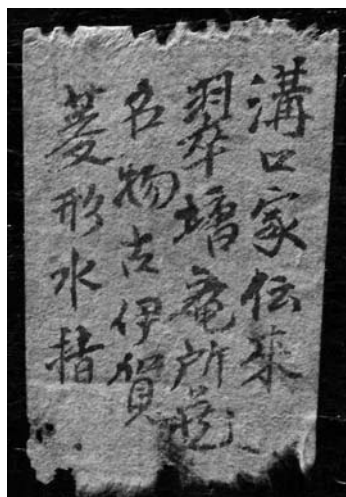 溝口家伝来
翠塘庵所蔵
名物古伊賀
菱形水指